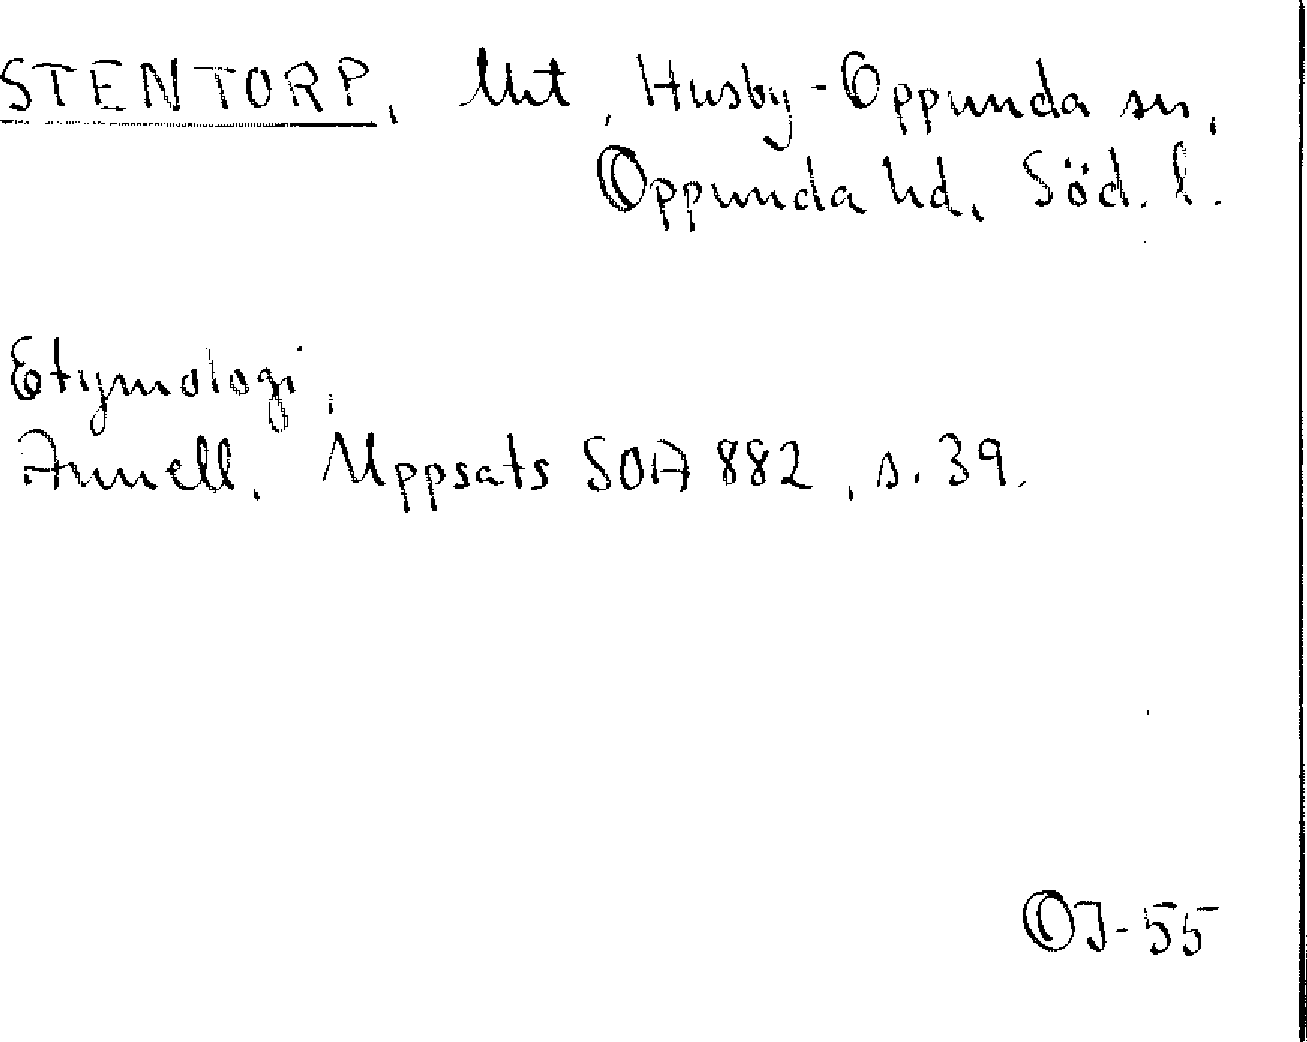 STENTORP, Unt, Husby-Oppunda sn,
Oppunda hd, Söd. l.
Etymologi,
Annell. Uppsats SOA 882, s. 39.
OJ-55